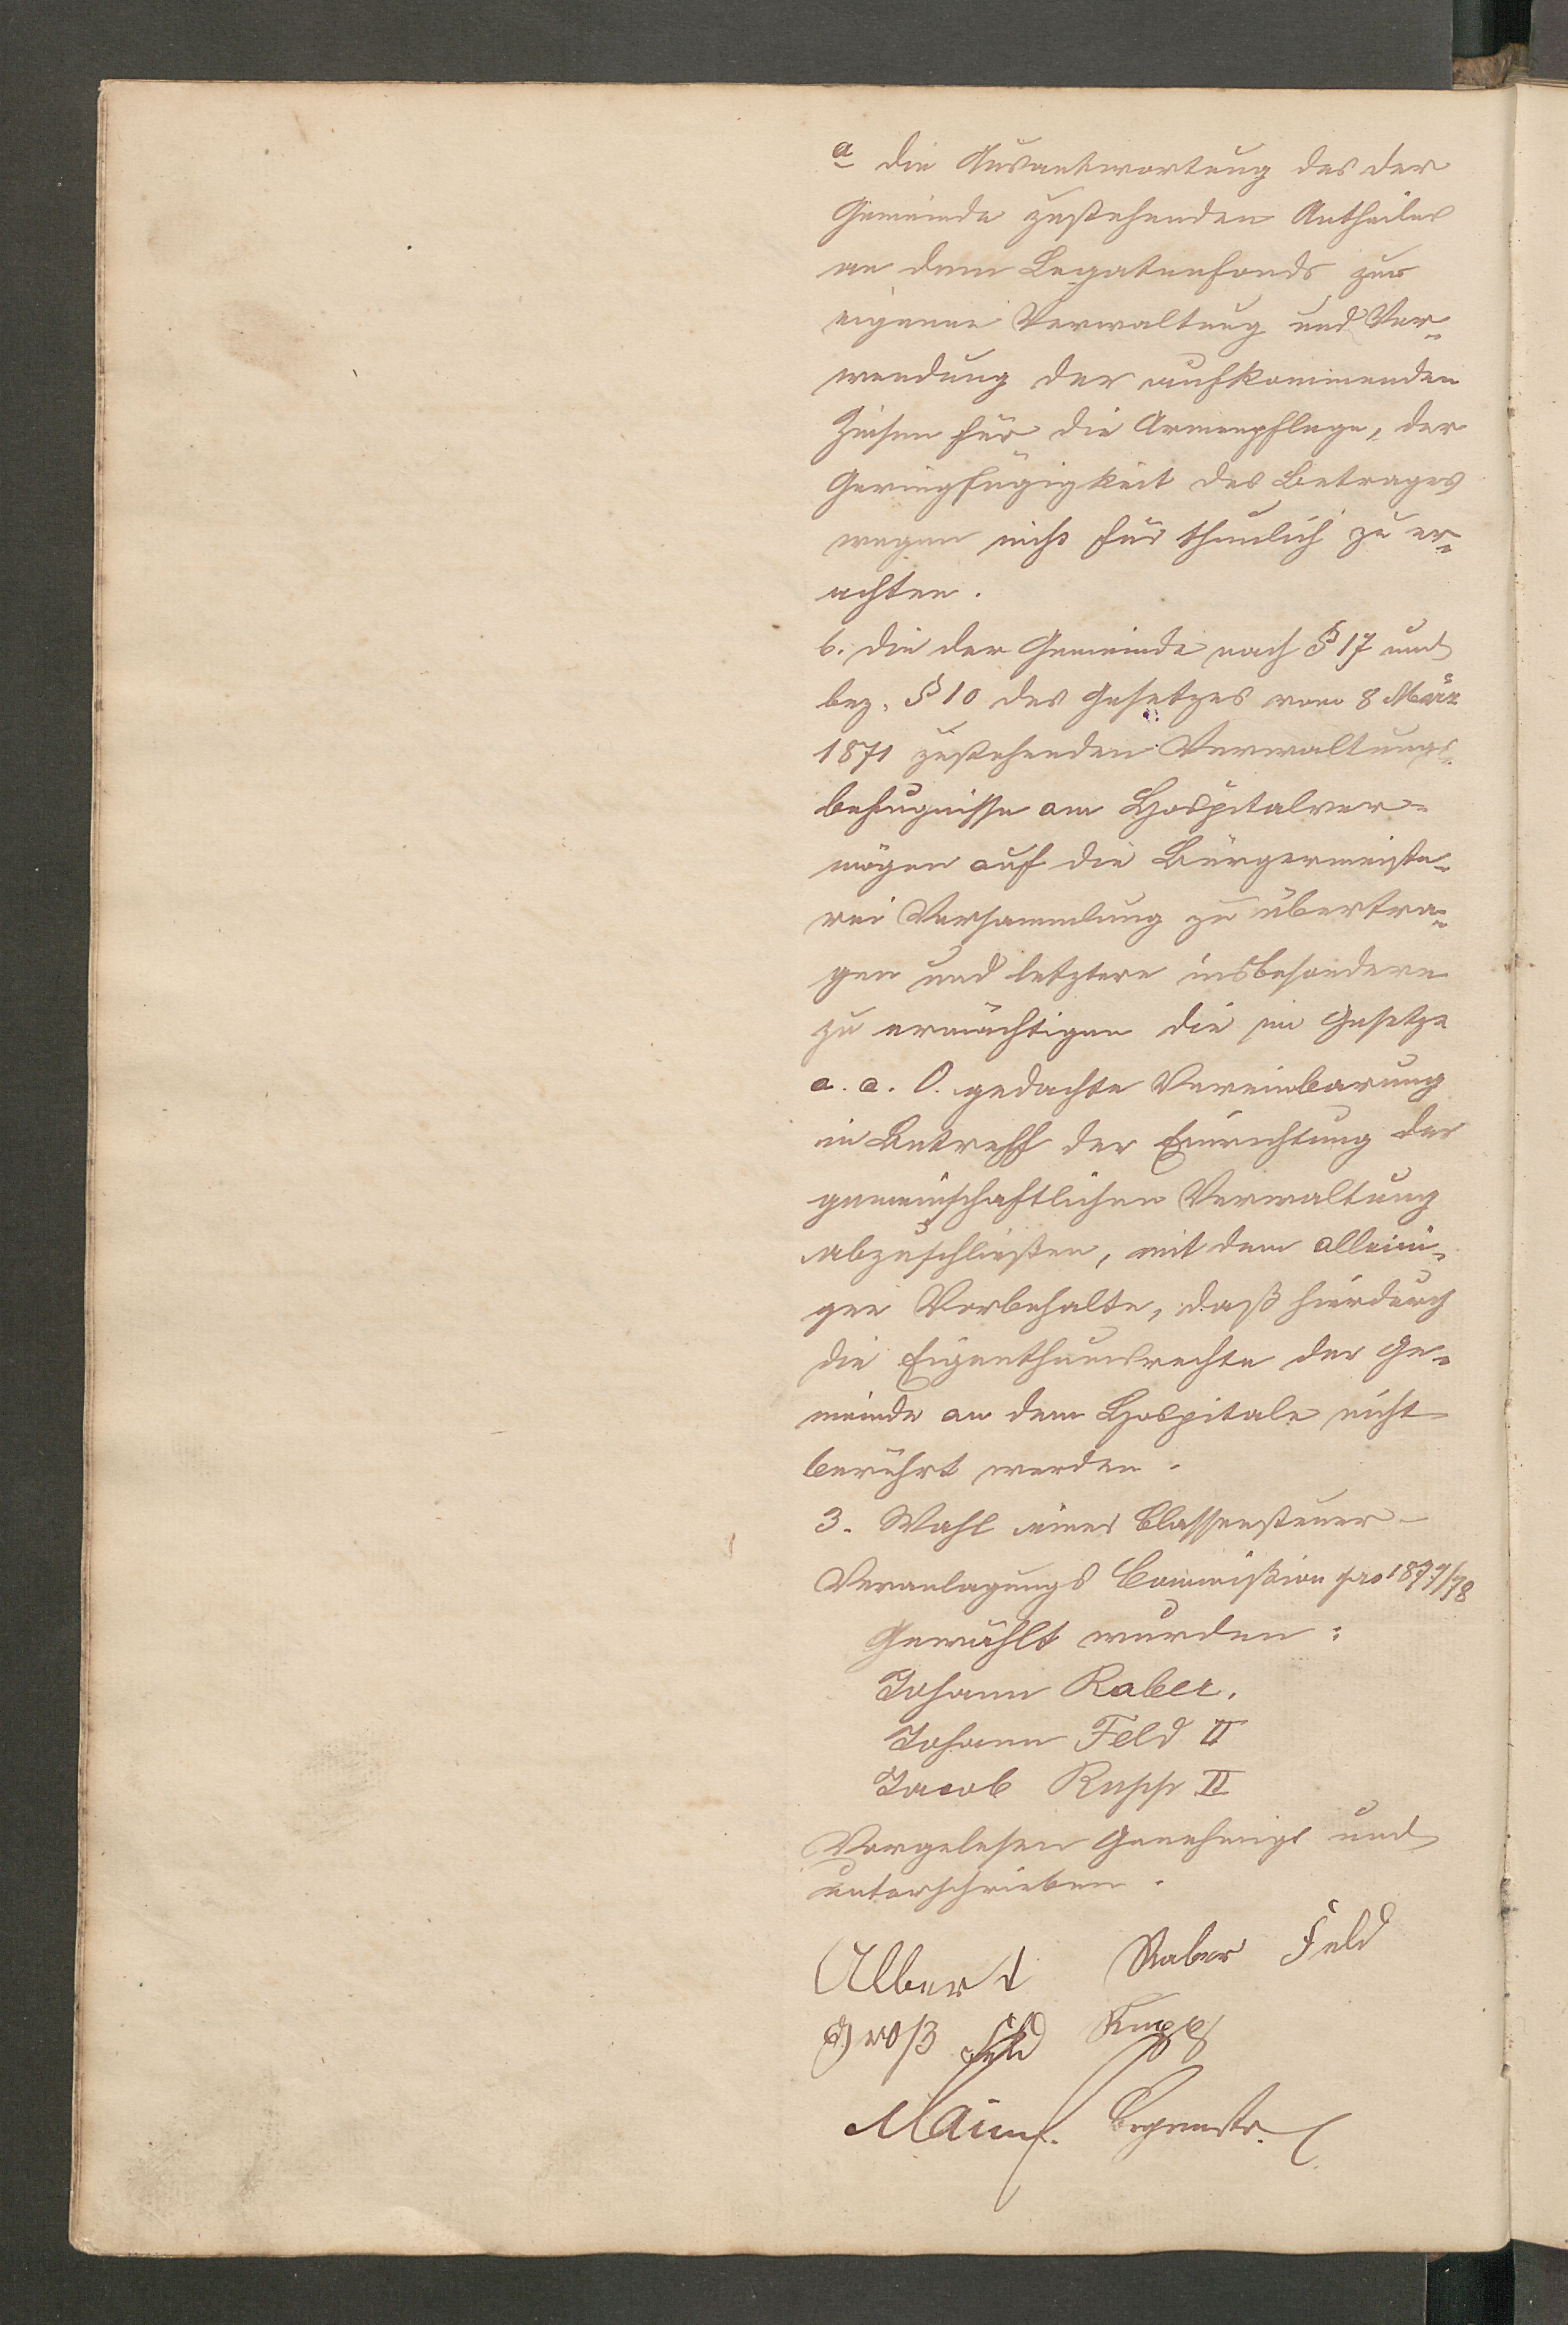 a die Ausantwortung des der
Gemeinde zustehenden Antheiles
an dem Legatenfonds zur
eigenen Verwaltung und Ver-
wendung der aufkommenden
Zinsen für die Armenpflege, der
Geringfügigkeit des Betrages
wegen nicht für thunlich zu er-
achten.
b. die der Gemeinde nach § 17 und
bez. § 10 des Gesetzes vom 8 März
1871 zustehenden Verwaltungs-
befugnisse am Hospitalver-
mögen auf die Bürgermeiste-
rei Versammlung zu übertra-
gen und letztere insbesondere
zu ermächtigen die im Gesetze
a. a. O. gedachte Vereinbarung
in Betreff der Einrichtung der
gemeinschaftlichen Verwaltung
abzuschließen, mit dem alleini-
gen Vorbehalte, daß hierdurch
die Eigenthumsrechte der Ge-
meinde an dem Hospitale nicht
berührt werden.
3. Wahl einer Classensteuer-
Veranlagungs Commißion pro 1877/78
Gewählt wurden:
Johann Raber.
Johann Feld II
Jacob Rupp II
Vorgelesen Genehmigt und
unterschrieben.
Albert Raber Feld
Groß Feld Rupp
Brgmstr.